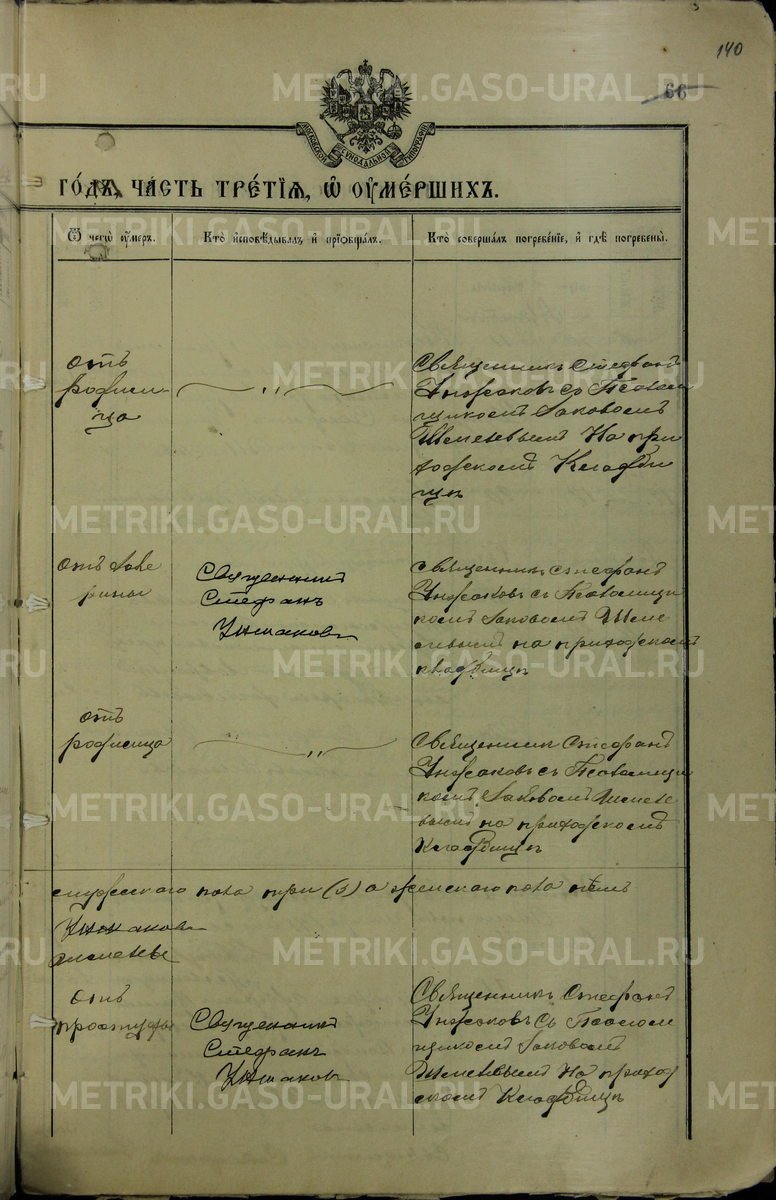 140
66
МОСКОВСКОЙ СѴНОДАЛЬНОЙ ТИПОГРАФІИ
ГО́ДЪ, ЧА́СТЬ ТРЕ́ТІѦ, Ѡ҆ ОУ҆МЕ́РШИХЪ.
Ѿ чегѡ̀ оу҆́меръ.
Кто̀ и҆сповѣ́дывалъ и҆ прїѡбща́лъ.
Кто̀ соверша́лъ погребе́нїе, и҆ гдѣ̀ погребены̀.
отъ
родими-
ца
Священникъ Стефанъ
Ушаковъ съ Псалом
щикомъ Іаковомъ
на при
ходскомъ Кладби
щѣ
отъ
Священникъ
Стефанъ
Ушаковъ
священникъ Стефанъ
Ушаковъ съ Псаломщи
комъ Іаковомъ
на приходскомъ
кладбищѣ
отъ
родимца
Священникъ Стефанъ
Ушаковъ съ Псаломщи
комъ Іаковомъ
на приходскомъ
Кладбищѣ
мужескаго пола три (3) а женскаго пола
Ушаковъ
отъ
простуды
Священникъ
Стефанъ
Ушаковъ
Священникъ Стефанъ
Ушаковъ съ Псалом
щикомъ Іаковомъ
на приход
скомъ Кладбищѣ
METRIKI.GASO-URAL.RU